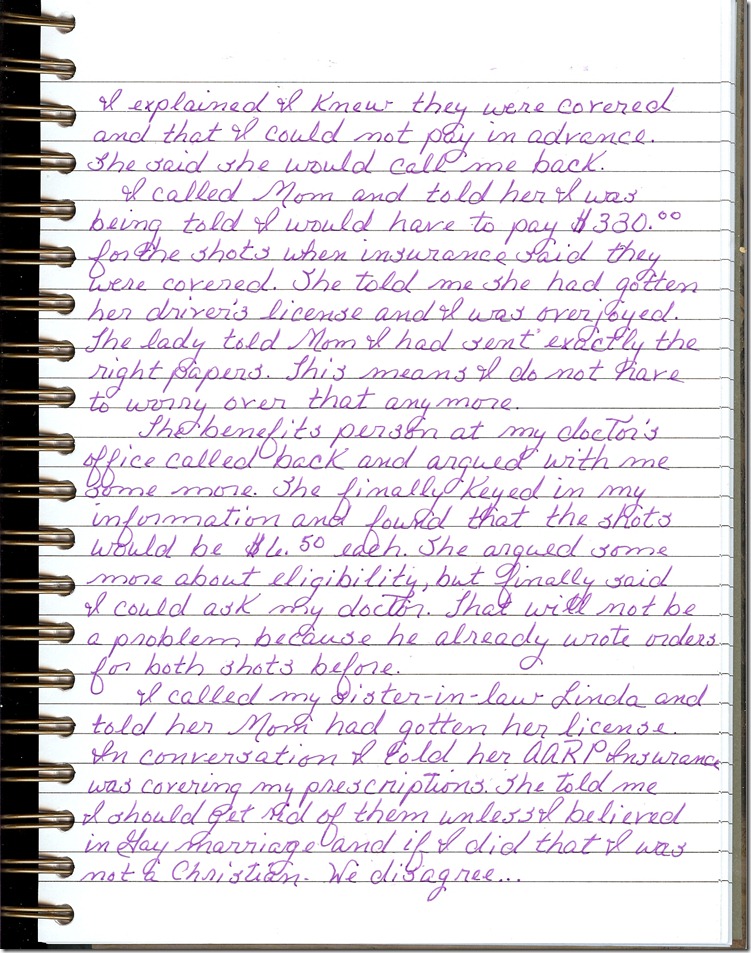 I explained I knew they were covered
and that I could not pay in advance.
She said she would call me back.
I called Mom and told her I was
being told I would have to pay $330.00
for the shots when insurance said they
were covered. She told me she had gotten
her driver's license and I was overjoyed.
The lady told Mom I had sent exactly the
right papers. This means I do not have
to worry over that anymore.
The benefits person at my doctor's
office called back and argued with me
some more. She finally keyed in my
information and found that the shots
would be $6.50 each. She argued some
more about eligibility, but finally said
I could ask my doctor. That will not be
a problem because he already wrote orders
for both shots before.
I called my sister-in-law Linda and
told her Mom had gotten her license.
In conversation I told her AARP Insurance
was covering my prescriptions. She told me
I should get rid of them unless I believed
in Gay marriage and if I did that I was
not a Christian. We disagree...